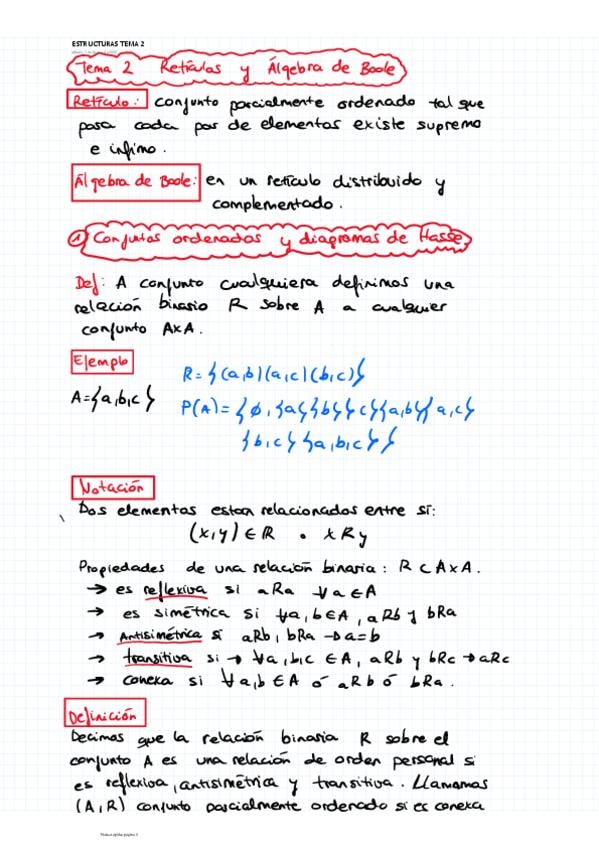 ESTRUCTURAS TEMA 2
Tema 2 Retículos y Álgebra de Boole
Retículo: conjunto parcialmente ordenado tal que
para cada par de elementos existe supremo
e ínfimo.
Álgebra de Boole: en un retículo distribuido y
complementado.
① Conjuntos ordenados y diagramas de Hasse
Def: A conjunto cualquiera definimos una
relación binaria R sobre A a cualquier
conjunto AxA.
Ejemplo
R={(a,b)(a,c)(b,c)}
A={a,b,c}
P(A)={ø,{a}{b}{c}{a,b}{a,c}
{b,c}{a,b,c}}
Notación
Dos elementos estan relacionados entre sí:
(x,y)∈R o xRy
Propiedades de una relación binaria: R⊂AxA.
→ es reflexiva si aRa ∀a∈A
→ es simétrica si ∀a,b∈A, aRb y bRa
→ Antisimétrica si aRb, bRa → a=b
→ transitiva si → ∀a,b,c ∈A, aRb y bRc → aRc
→ conexa si ∀a,b∈A ó aRb ó bRa.
Definición
Decimos que la relación binaria R sobre el
conjunto A es una relación de orden personal si
es reflexiva, antisimétrica y transitiva. Llamamos
(A,R) conjunto parcialmente ordenado si es conexa